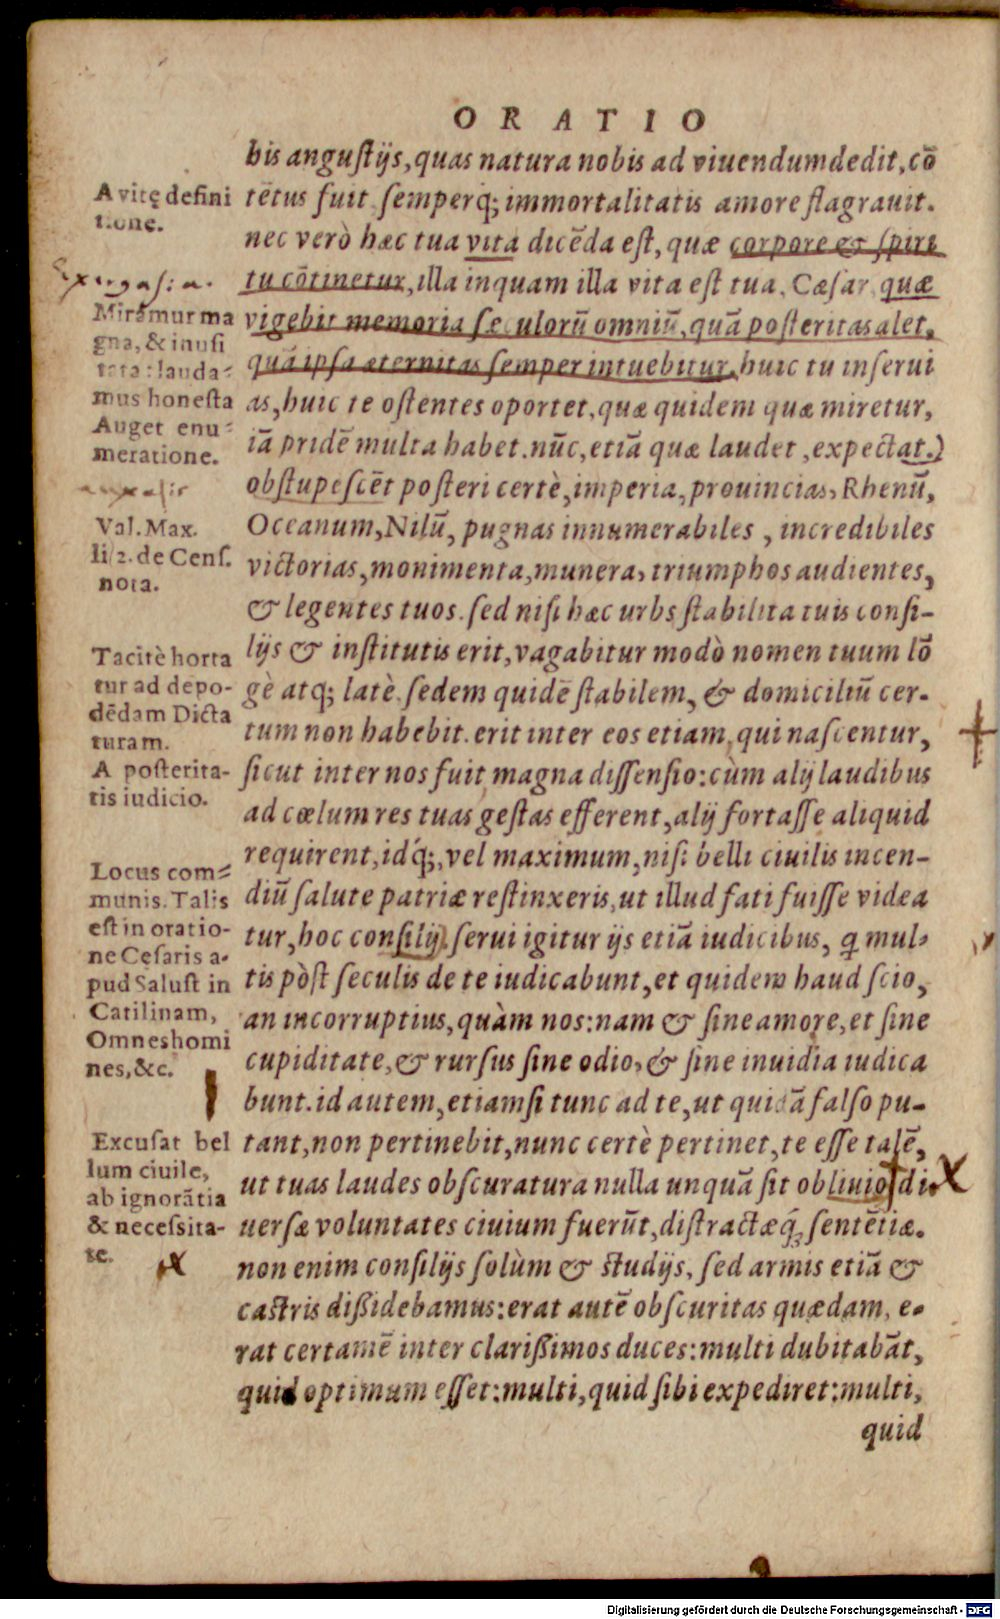 ORATIO
bis angustijs, quas natura nobis ad viuendum dedit, cō
A vitę defini
tione.
tētus fuit semperq́; immortalitatis amore flagrauit.
nec verò hæc tua vita dicēda est, quæ corpore & spiri
tu cōtinetur, illa inquam illa vita est tua, Cæsar, quæ
Exergasia.
Miramur ma
gna, & inusi
tata: lauda-
mus honesta
Auget enu-
meratione.
vigebit memoria seculorū omniū, quā posteritas alet,
quā ipsa æternitas semper intuebitur. huic tu inserui
as, huic te ostentes oportet, quæ quidem quæ miretur,
iā pridē multa habet. nūc, etiā quæ laudet, expectat.)
obstupescēt posteri certè, imperia, prouincias, Rhenū,
Val. Max.
li. 2. de Cens.
nota.
Oceanum, Nilū, pugnas innumerabiles, incredibiles
victorias, monimenta, munera, triumphos audientes,
& legentes tuos. sed nisi hæc urbs stabilita tuis consi-
Tacitè horta
tur ad depo-
dēdam Dicta
turam.
lijs & institutis erit, vagabitur modò nomen tuum lō
gè atq; latè. sedem quidē stabilem, & domiciliū cer-
tum non habebit. erit inter eos etiam, qui nascentur,
A posterita-
tis iudicio.
sicut inter nos fuit magna dissensio: cùm alij laudibus
ad cœlum res tuas gestas efferent, alij fortasse aliquid
requirent, idq́;, vel maximum, nisi belli ciuilis incen-
Locus com-
munis. Talis
est in oratio-
ne Cęsaris a-
pud Salust in
Catilinam,
Omnes homi
nes, &c.
diū salute patriæ restinxeris, ut illud fati fuisse videa
tur, hoc consilij. serui igitur ijs etiā iudicibus, q̄ mul-
tis pòst seculis de te iudicabunt, et quidem haud scio,
an incorruptius, quàm nos: nam & sine amore, et sine
cupiditate, & rursus sine odio, & sine inuidia iudica
bunt. id autem, etiamsi tunc ad te, ut quidā falso pu-
Excusat bel
lum ciuile,
ab ignorātia
& necessita-
te.
tant, non pertinebit, nunc certè pertinet, te esse talē,
ut tuas laudes obscuratura nulla unquā sit obliuio. di
uersæ voluntates ciuium fuerūt, distractæq́; sentētiæ.
non enim consilijs solùm & studijs, sed armis etiā &
castris dißidebamus: erat autē obscuritas quædam, e-
rat certamē inter clarißimos duces: multi dubitabāt,
quid optimum esset: multi, quid sibi expediret: multi,
quid
Digitalisierung gefördert durch die Deutsche Forschungsgemeinschaft - DFG